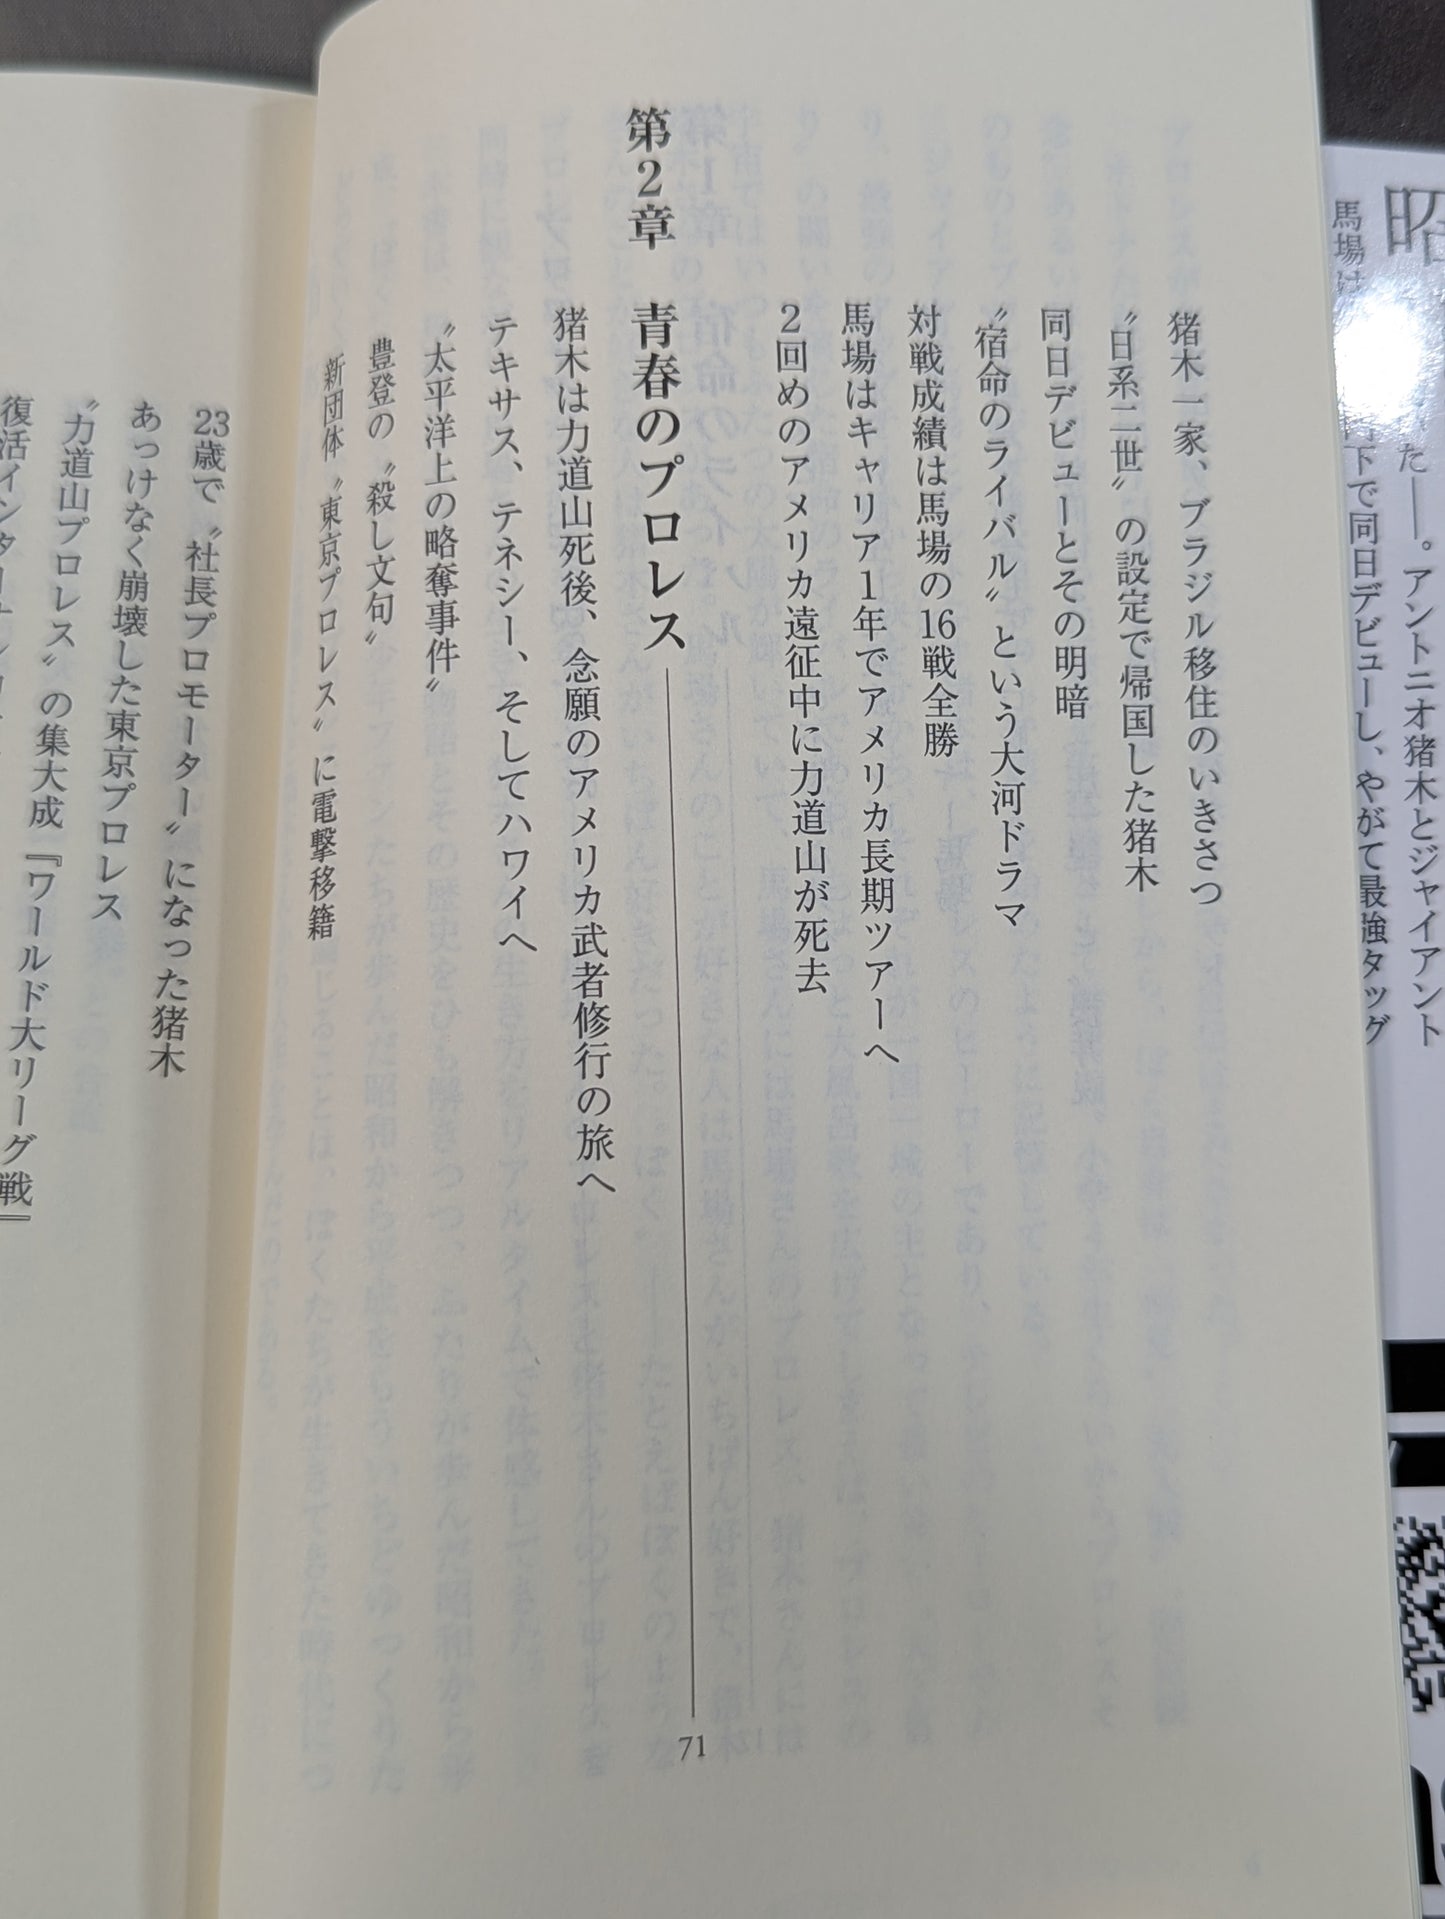 昭
た――。アントニオ猪木とジャイアント
馬場は
下で同日デビューし、やがて最強タッグ
猪木一家、ブラジル移住のいきさつ
〝日系二世〟の設定で帰国した猪木
同日デビューとその明暗
〝宿命のライバル〟という大河ドラマ
対戦成績は馬場の16戦全勝
馬場はキャリア1年でアメリカ長期ツアーへ
2回めのアメリカ遠征中に力道山が死去
第2章 青春のプロレス 71
猪木は力道山死後、念願のアメリカ武者修行の旅へ
テキサス、テネシー、そしてハワイへ
〝太平洋上の略奪事件〟
豊登の〝殺し文句〟
新団体〝東京プロレス〟に電撃移籍
23歳で〝社長プロモーター〟になった猪木
あっけなく崩壊した東京プロレス
〝力道山プロレス〟の集大成『ワールド大リーグ戦』
復活インターナショナル